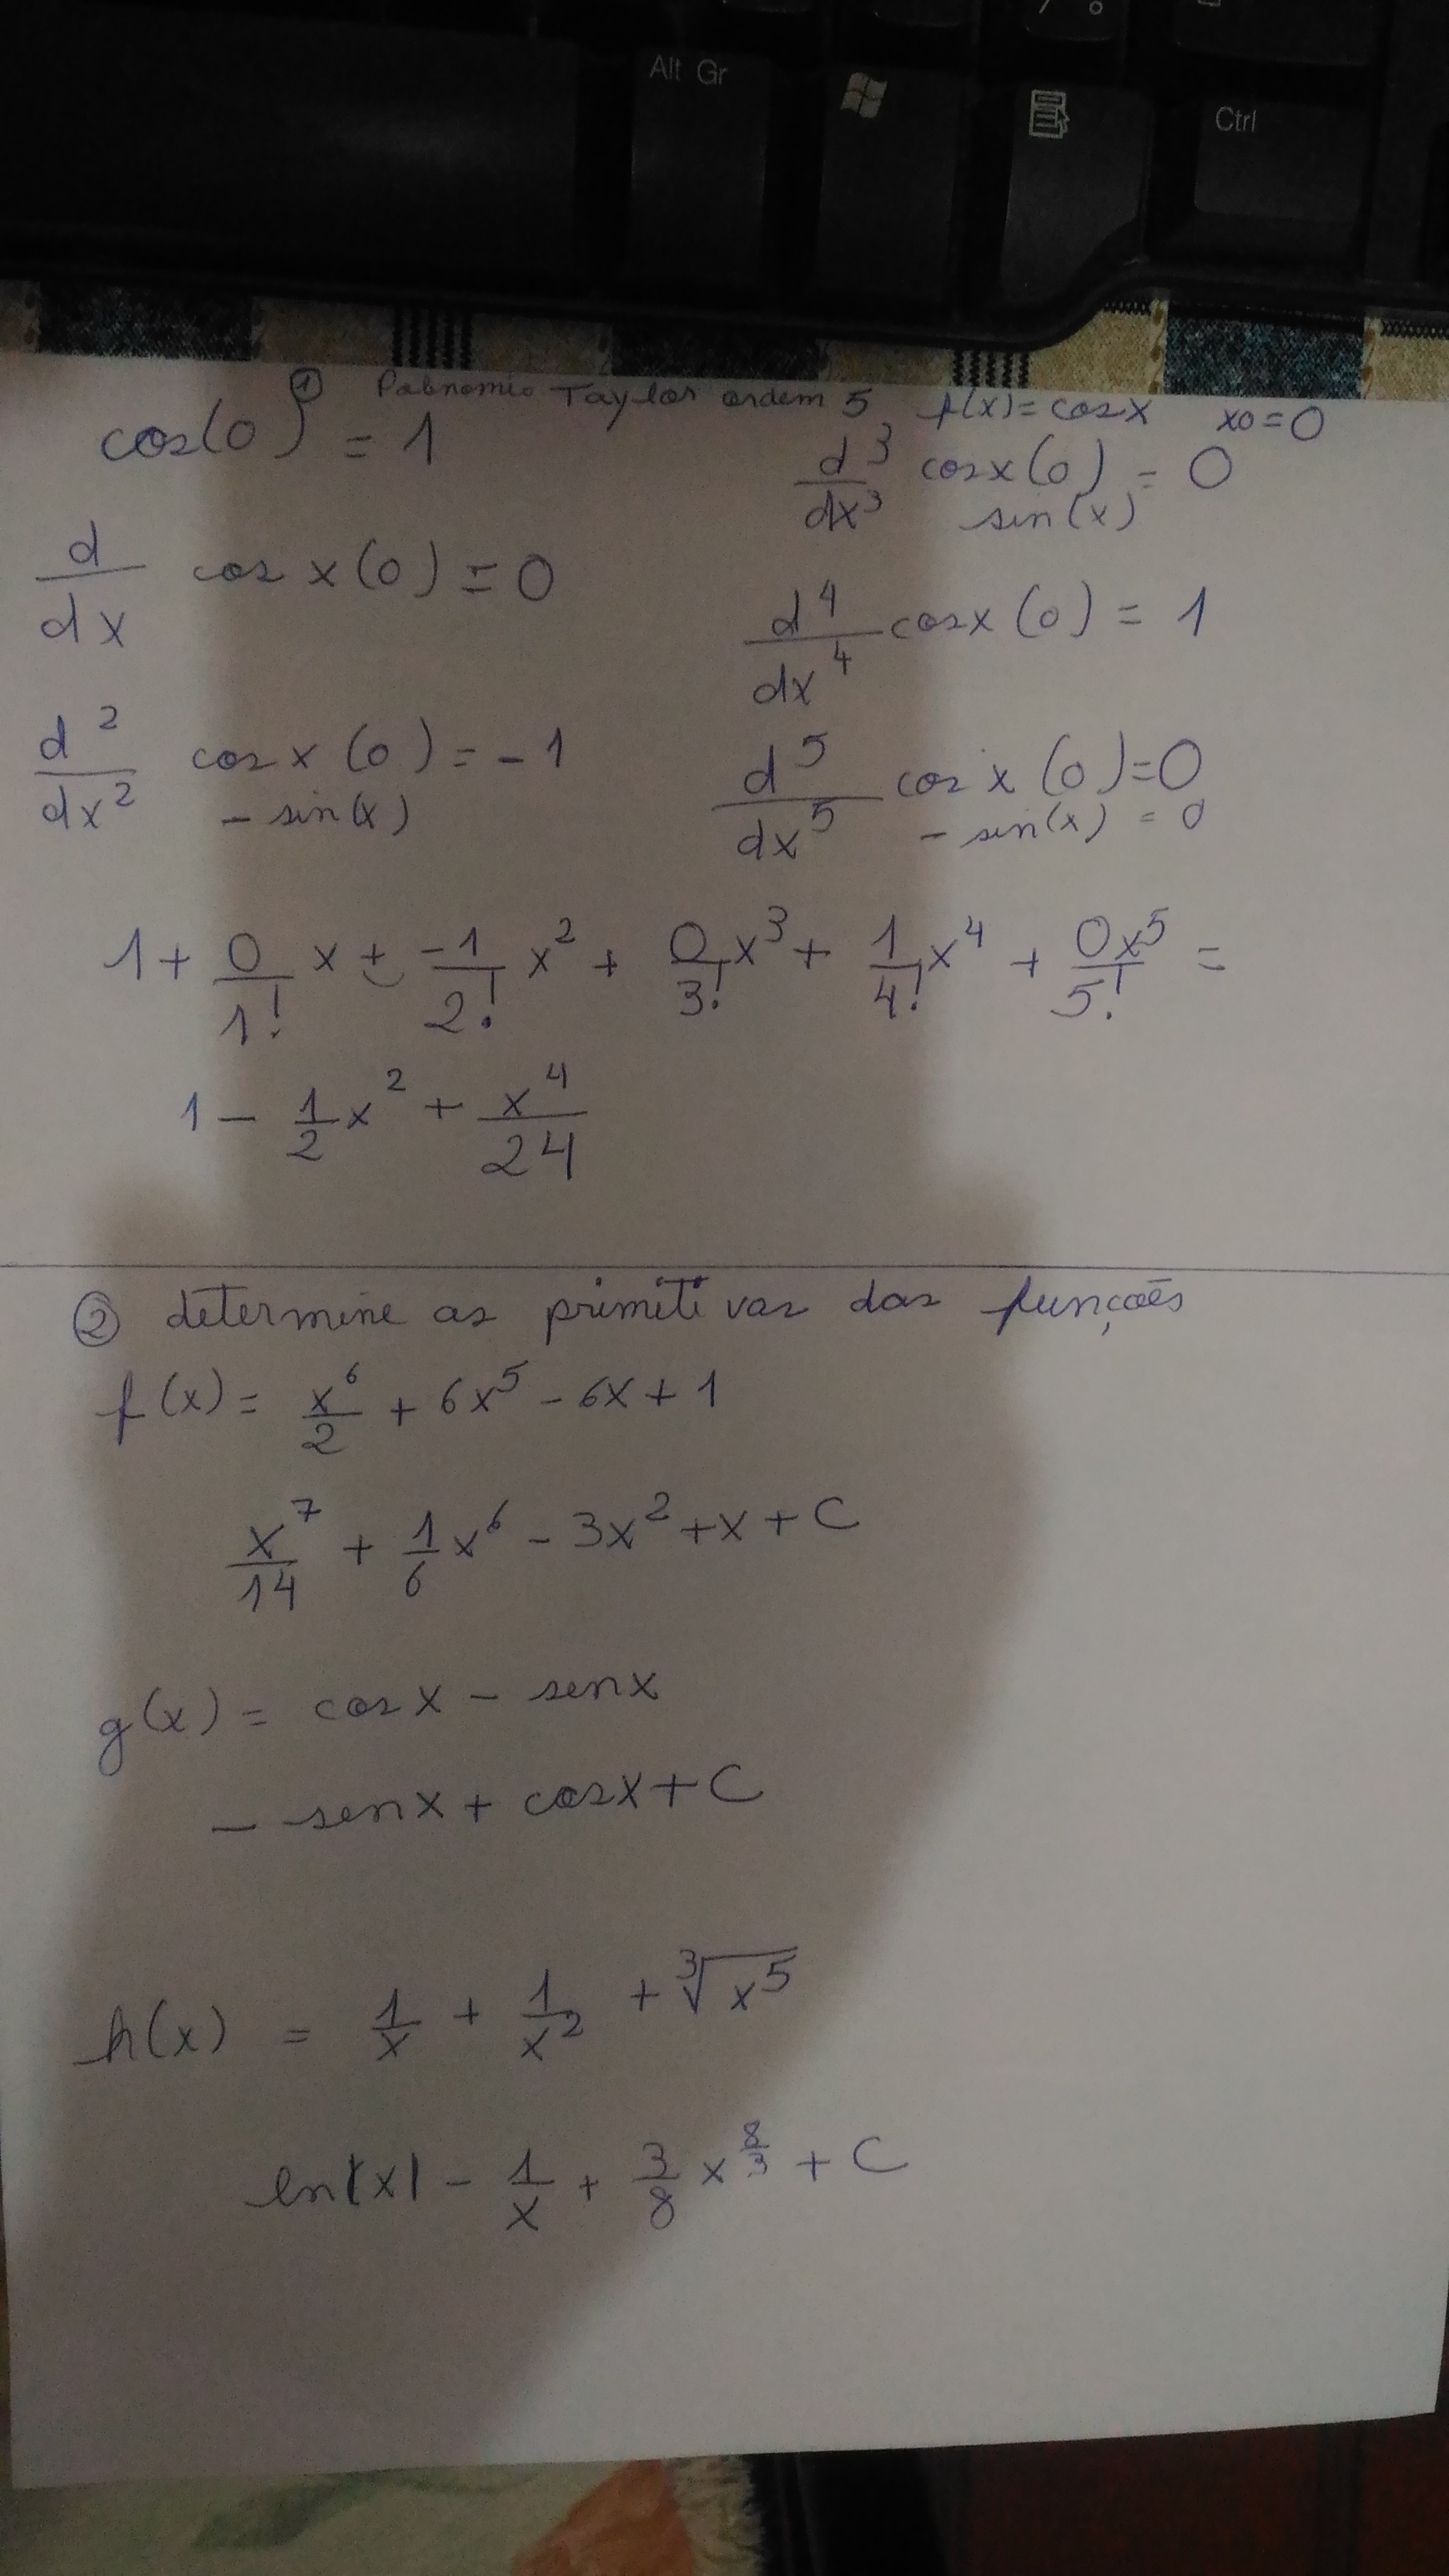 Alt Gr
Ctrl
① Polnomio Taylor ordem 5 f(x)=cosx x0=0
cos(0) = 1
d/dx cos x(0) = 0
d²/dx² cos x (0) = -1
- sin(x)
d³/dx³ cosx(0) = 0
sin(x)
d⁴/dx⁴ cosx (0) = 1
d⁵/dx⁵ cos x (0)=0
- sin(x) = 0
1 + 0/1! x + -1/2! x² + 0/3! x³ + 1/4! x⁴ + 0x⁵/5! =
1 - 1/2 x² + x⁴/24
② determine as primitivas das funções
f(x) = x⁶/2 + 6x⁵ - 6x + 1
x⁷/14 + 1/6 x⁶ - 3x² + x + C
g(x) = cosx - senx
- senx + cosx + C
h(x) = 1/x + 1/x² + ³√x⁵
ln|x| - 1/x + 3/8 x^8/3 + C